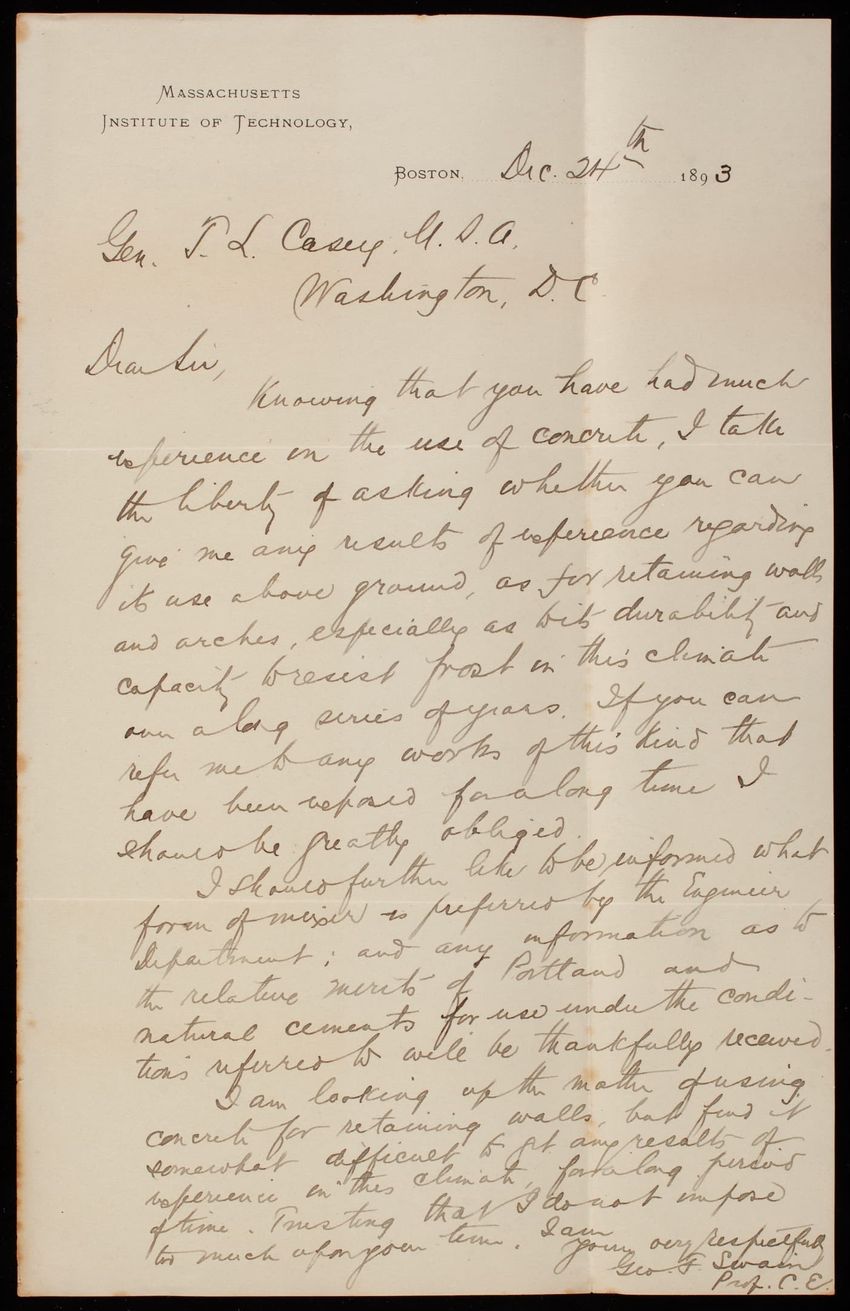 MASSACHUSETTS
INSTITUTE OF TECHNOLOGY,
BOSTON, Dec. 24th 1893
Gen. T. L. Casey, U. S. A.
Washington, D. C.
Dear Sir,
Knowing that you have had much
experience in the use of concrete, I take
the liberty of asking whether you can
give me any results of experience regarding
its use above ground, as for retaining walls
and arches, especially as to its durability and
capacity to resist frost in this climate
over a long series of years. If you can
refer me to any works of this kind that
have been exposed for a long time I
should be greatly obliged.
I should further like to be informed what
form of mixer is preferred by the Engineer
Department; and any information as to
the relative merits of Portland and
natural cements for use under the condi-
tions referred to will be thankfully received.
I am looking up the matter of using
concrete for retaining walls, but find it
somewhat difficult to get any results of
experience in this climate, for a long period
of time. Trusting that I do not impose
too much upon your time, I am
yours very respectfully
Geo. F. Swain
Prof. C. E.